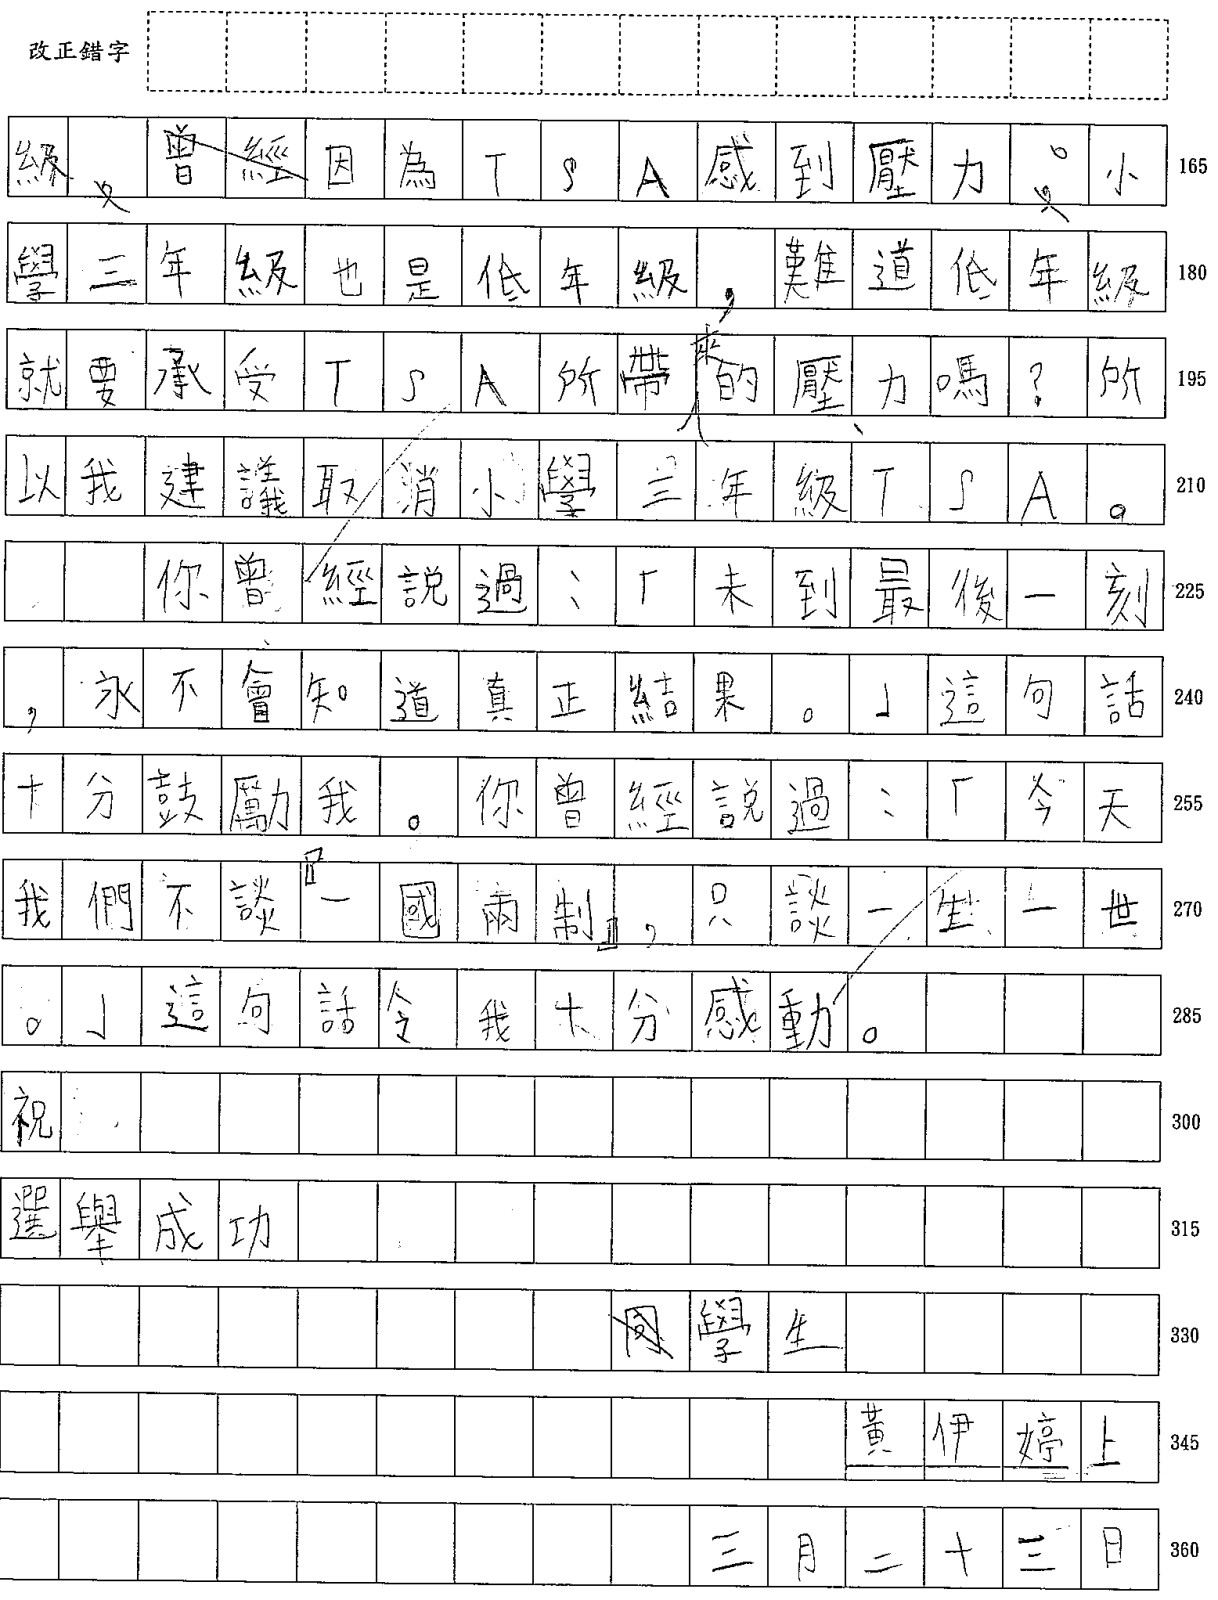 改正錯字
級、曾經因為TSA感到壓力。小 165
學三年級也是低年級，難道低年級 180
就要承受TSA所帶來的壓力嗎？所 195
以我建議取消小學三年級TSA。 210
你曾經説過：「未到最後一刻 225
，永不會知道真正結果。」這句話 240
十分鼓勵我。你曾經説過：「今天 255
我們不談『一國兩制』，只談一生一世 270
。」這句話令我十分感動。 285
祝 300
選舉成功 315
學生 330
黃伊婷上 345
三月二十三日 360